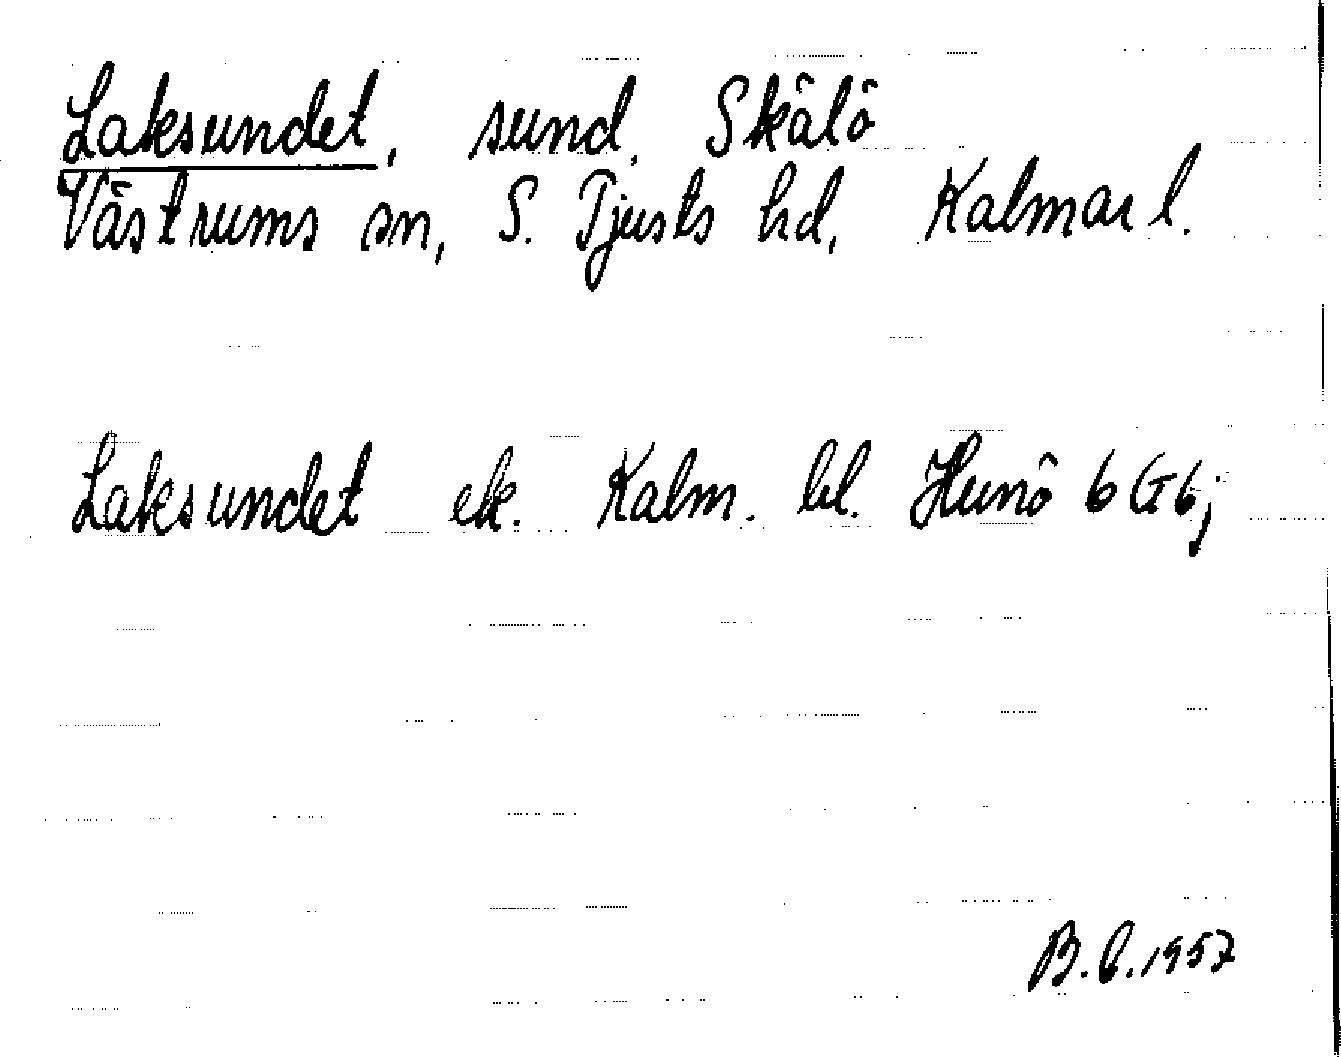 Laksundet, sund, Skälö
Västrums sn, S. Tjusts hd, Kalmar l.
Laksundet ek. Kalm. bl. Hunö 6 G 6;
B.E. 1957